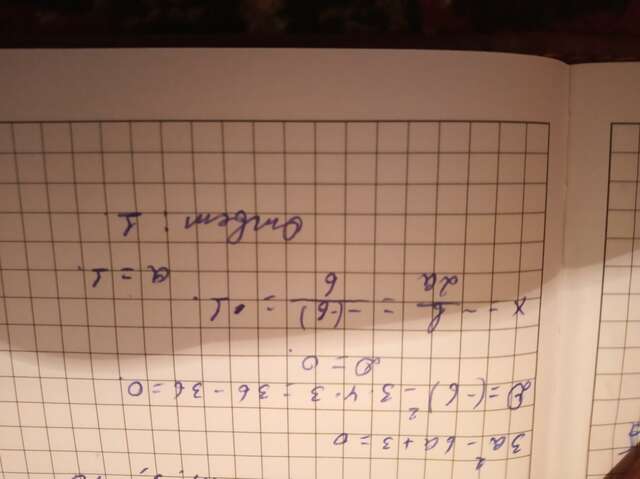 3a² - 6a + 3 = 0
D = (-6)² - 3 · 4 · 3 = 36 - 36 = 0
D = 0.
x = - b/2a = -(-6)/6 = 1.
a = 1.
Ответ: 1